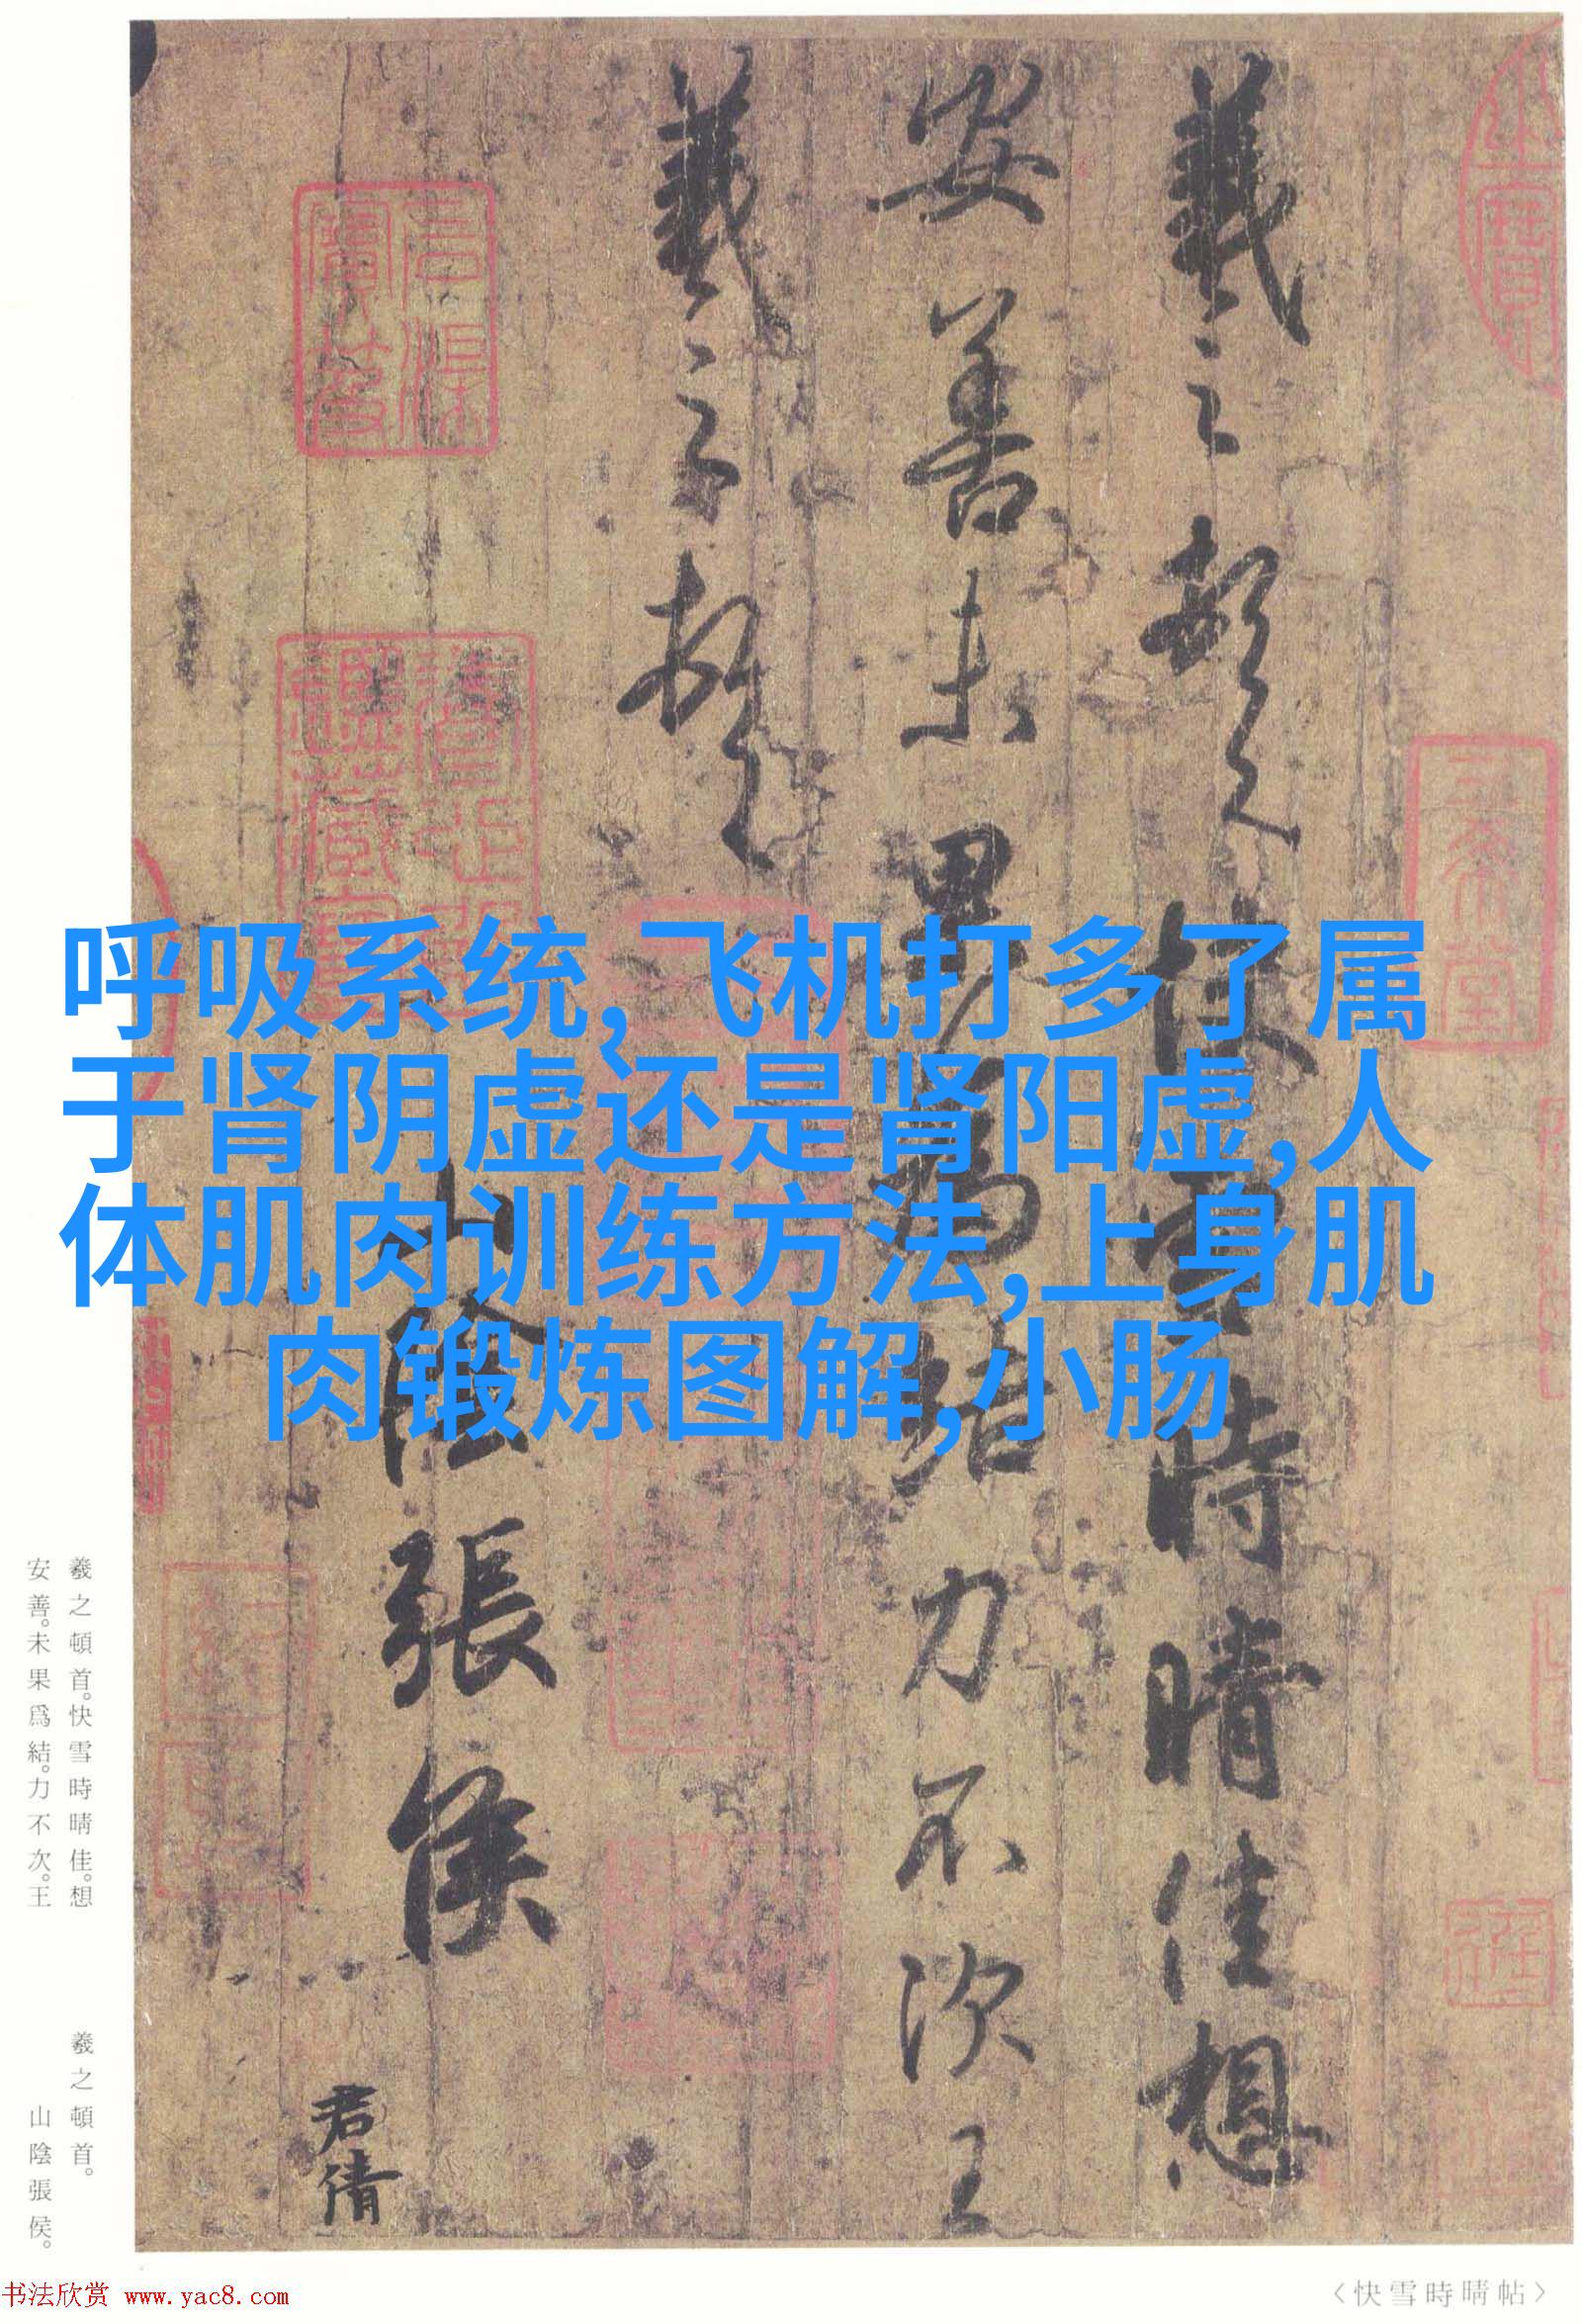 羲之頓首快雪時晴佳想
安善未果為結力不次王
羲之頓首
山陰張侯
君倩
呼吸系统,飞机打多了属
于肾阴虚还是肾阳虚,人
体肌肉训练方法,上身肌
肉锻炼图解,小肠
三希堂
羲之頓首。快雪時晴佳。想
安善。未果爲結。力不次。王
羲之頓首。
山陰張侯。
〈快雪時晴帖〉
书法欣赏 www.yac8.com